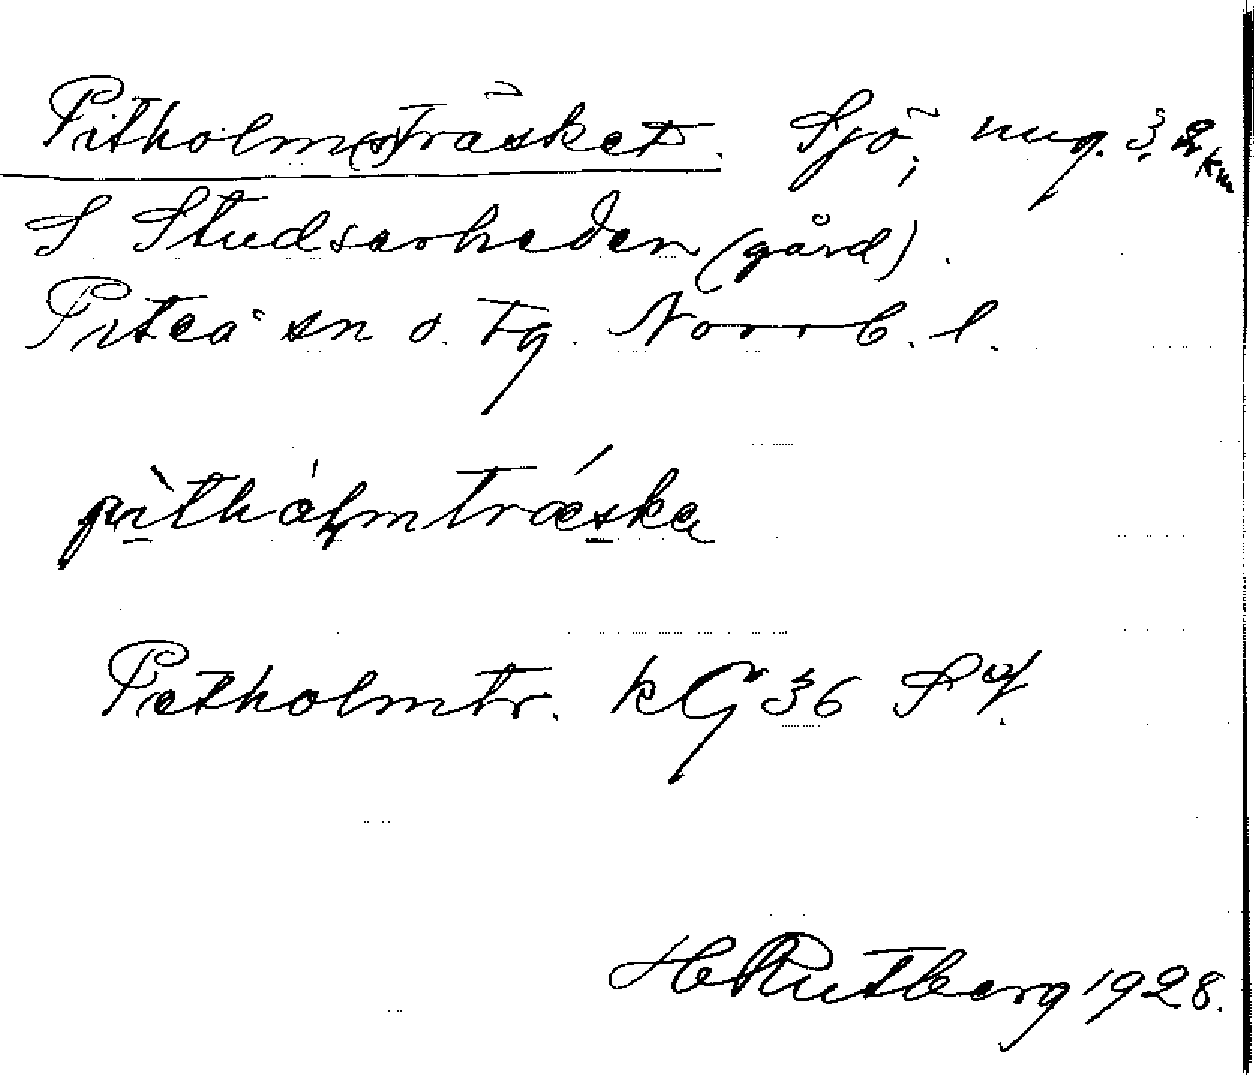 Pitholm(s)träsket. Sjö, ung. 3,2 km
S Studsarheden (gård).
Piteå sn o. tg. Norrb. l.
pìthólmtræ´ska
Petholmtr. kG 36 Sq.
H Rutberg 1928.